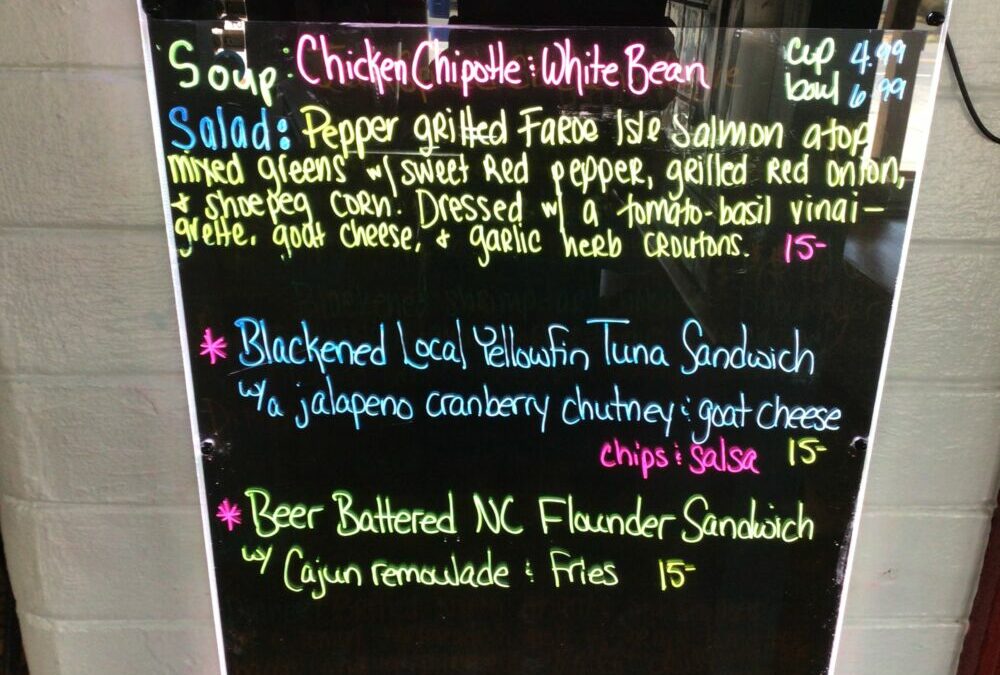 Soup: Chicken Chipotle & White Bean cup 4.99
bowl 6.99
Salad: Pepper grilled Faroe Isle Salmon atop
mixed greens w/ sweet Red pepper, grilled red onion,
& shoepeg corn. Dressed w/ a tomato-basil vinai-
grette, goat cheese, & garlic herb croutons. 15-
* Blackened Local Yellowfin Tuna Sandwich
w/a jalapeno cranberry chutney & goat cheese
chips & salsa 15-
* Beer Battered NC Flounder Sandwich
w/ Cajun remoulade & Fries 15-